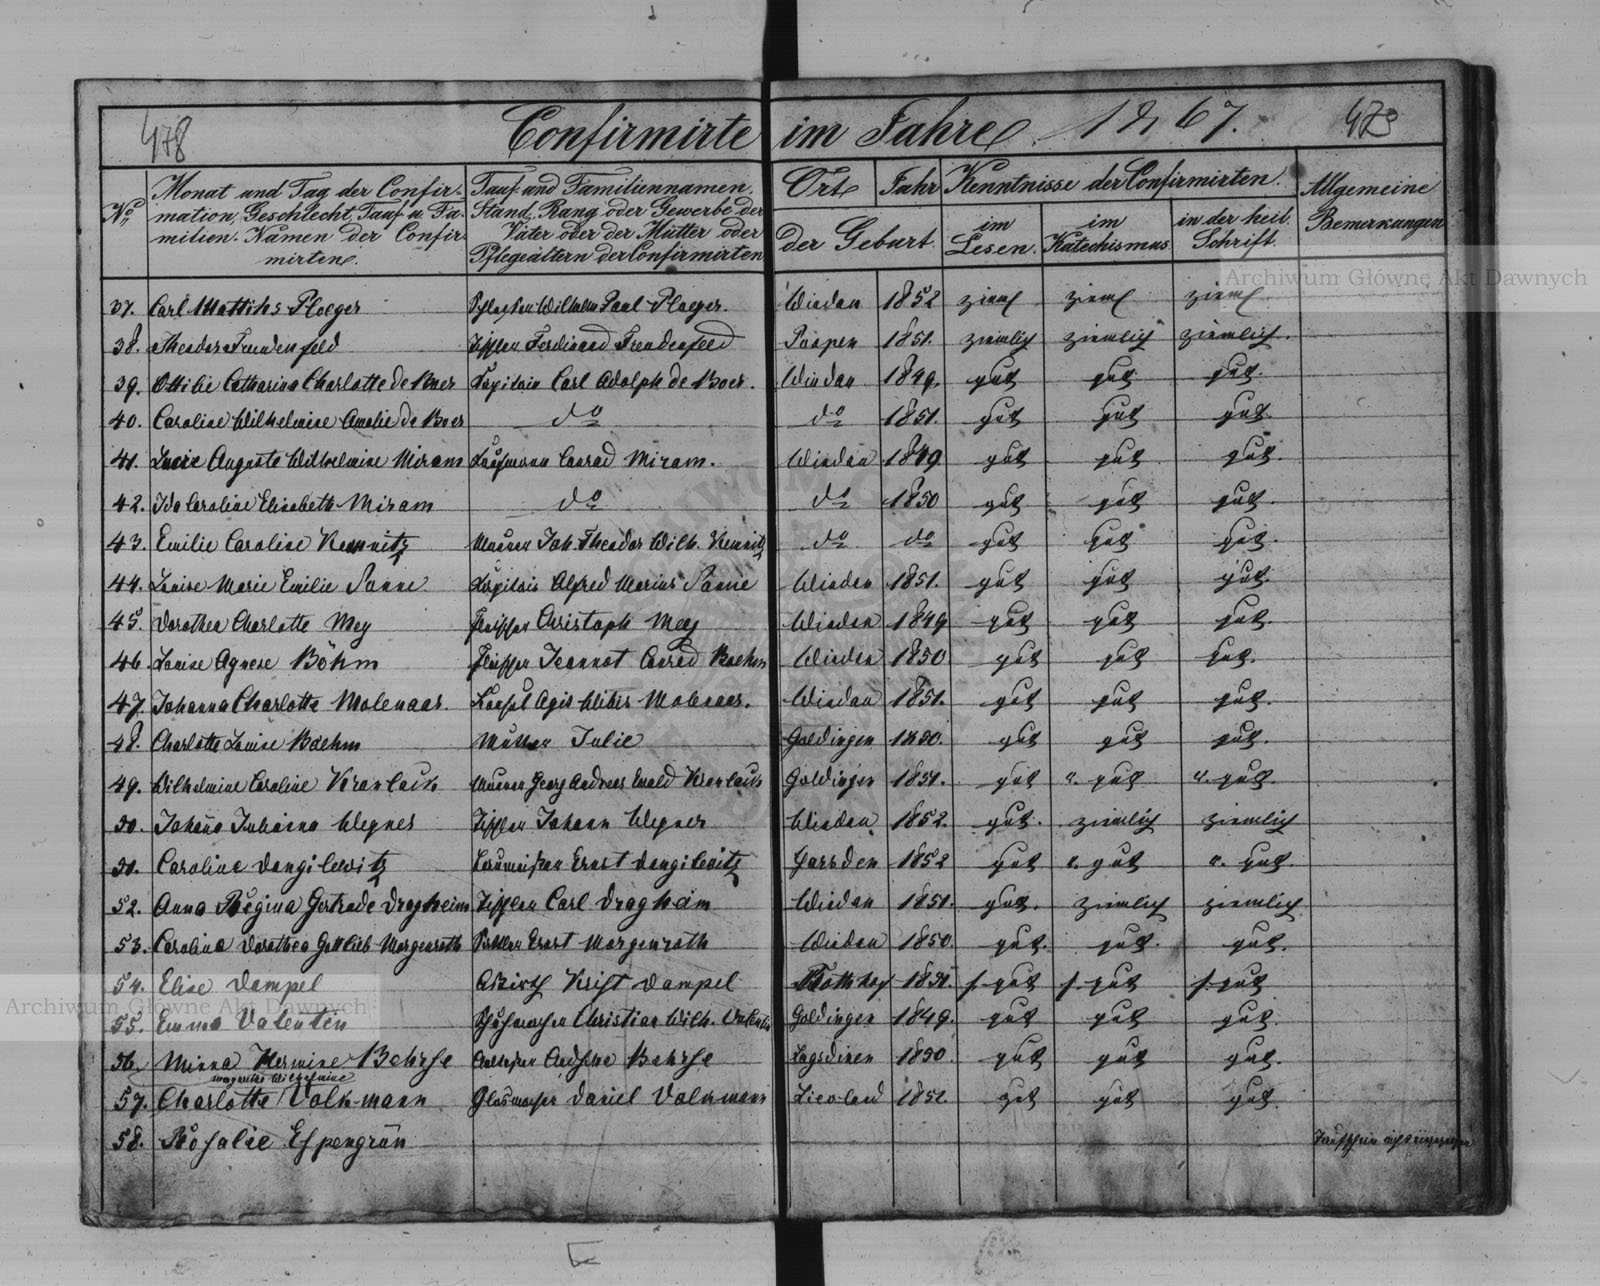 478
Confirmirte im Jahre 1867.
479
No
Monat und Tag der Confir-
mation, Geschlecht, Tauf u. Fa-
milien. Namen der Confir-
mirten.
Tauf und Familiennamen,
Stand, Rang oder Gewerbe der
Väter oder der Mütter oder
Pflegeältern der Confirmirten
Ort Jahr
der Geburt.
Kenntnisse der Confirmirten.
im
Lesen.
im
Katechismus
in der heil.
Schrift.
Allgemeine
Bemerkungen
Archiwum Główne Akt Dawnych
37. Carl Mattihs Ploeger Wilhelm Paul Ploeger. Windau 1852 zieml zieml zieml
38. Theodor Freudenfeld Tischler Ferdinand Freudenfeld 1851. ziemlich ziemlich ziemlich.
39. Ottilie Catharina Charlotte de Boer Kapitain Carl Adolph de Boer. Windau 1849. gut gut gut.
40. Caroline Wilhelmine Amalie de Boer do do 1851. gut gut gut.
41. Lucie Auguste Wilhelmine Miram Kaufmann Conrad Miram. Windau 1849 gut gut gut.
42. Ida Caroline Elisabeth Miram do do 1850 gut gut gut.
43. Emilie Caroline Kemnitz Maurer Joh. Theodor Wilh. Kemnitz do do gut gut gut.
44. Louise Marie Emilie Sanne Kapitain Alfred Marius Sanne Windau 1851. gut gut gut.
45. Dorothea Charlotte Mey Fleischer Christoph Mey Windau 1849 gut gut gut.
46. Louise Agnese Böhm Fleischer Jeannot Conrad Boehm Windau 1850 gut gut gut.
47. Johanna Charlotte Molenaar. Molenaar. Windau 1851. gut gut gut.
48. Charlotte Louise Boehm Mutter Julie Goldingen 1850. gut gut gut.
49. Wilhelmine Caroline Maurer Georg Andreas Ewald Goldingen 1851. gut gut gut.
50. Johanna Juliana Wegner Tischler Johann Wegner Windau 1852. gut. ziemlich ziemlich
50. Caroline Dengilewitz Ernst Dengilewitz 1852 gut gut gut.
52. Anna Regina Gertrude Dragheim Tischler Carl Dragheim Windau 1851. gut. ziemlich ziemlich
53. Carolina Dorothea Gottlieb Morgenroth Ernst Morgenroth Windau 1850. gut. gut. gut.
54. Elise Dampel Dampel f. gut f. gut f. gut
Archiwum Główne Akt Dawnych
55. Emma Valentin Schuhmacher Christian Wilh. Valentin Goldingen 1849. gut gut gut.
56. Minna Hermine Behrse Behrse 1850. gut gut gut.
Wilhelmine
57. Charlotte Volkmann Daniel Volkmann 1852. gut gut gut.
58. Rosalie Espengrün Taufschein